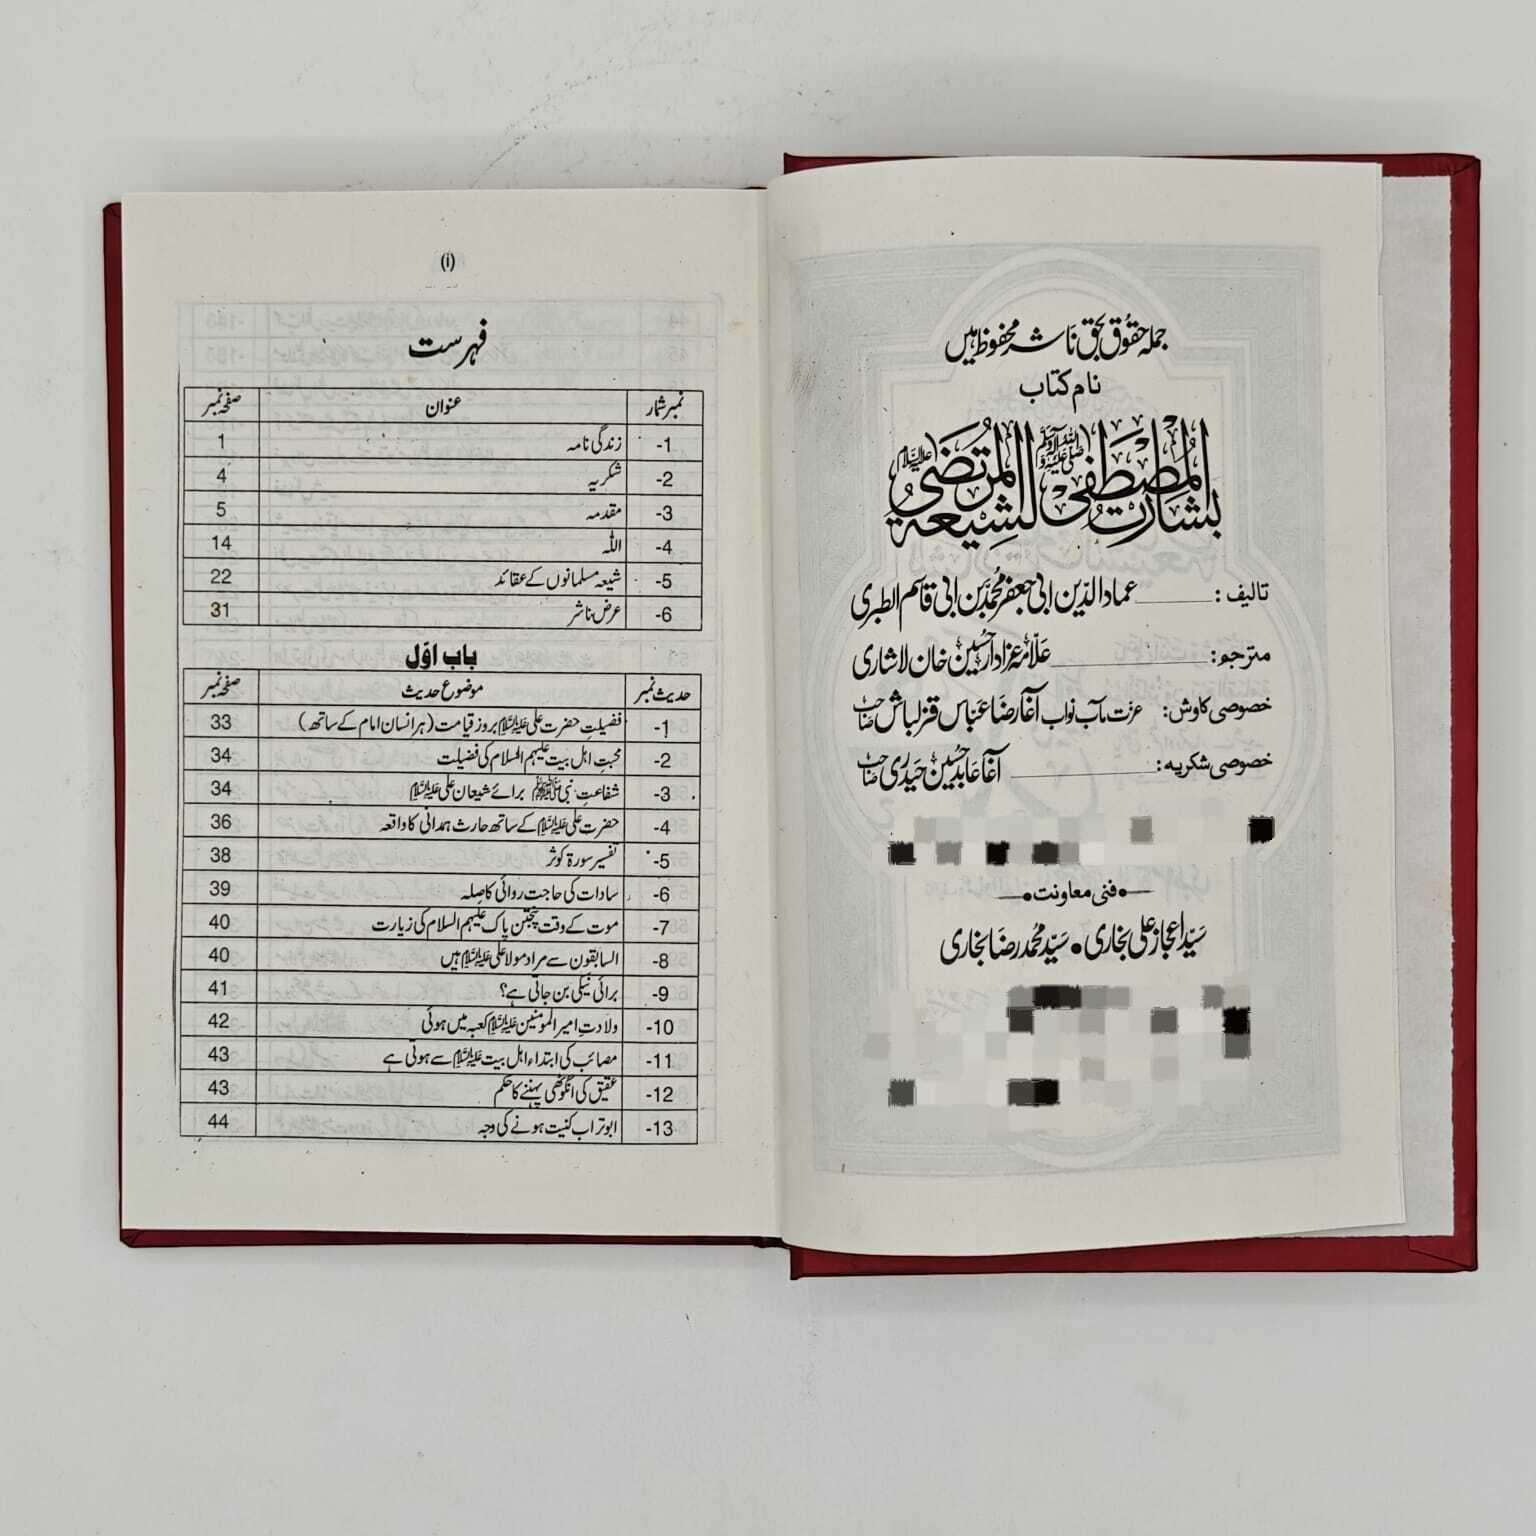 جملہ حقوق بحق ناشر محفوظ ہیں
نام کتاب
بشارت المصطفیٰ صلی اللہ علیہ وآلہ وسلم لشیعۃ المرتضیٰ علیہ السلام
تالیف: عماد الدین ابی جعفر محمد بن ابی قاسم الطبری
مترجم: علامہ عزادار حسین خان لاشاری
خصوصی کاوش: عزت مآب نواب آغا رضا عباس قزلباش صاحب
خصوصی شکریہ: آغا عابد حسین حیدری صاحب
فنی معاونت
سید اعجاز علی بخاری • سید محمد رضا بخاری
(i)
فہرست
نمبر شمار عنوان صفحہ نمبر
1- زندگی نامہ 1
2- شکریہ 4
3- مقدمہ 5
4- اللہ 14
5- شیعہ مسلمانوں کے عقائد 22
6- عرض ناشر 31
باب اوّل
حدیث نمبر موضوع حدیث صفحہ نمبر
1- فضیلتِ حضرت علی علیہ السلام بروز قیامت (ہر انسان امام کے ساتھ) 33
2- محبتِ اہل بیت علیہم السلام کی فضیلت 34
3- شفاعتِ نبی صلی اللہ علیہ وآلہ وسلم برائے شیعان علی علیہ السلام 34
4- حضرت علی علیہ السلام کے ساتھ حارث ہمدانی کا واقعہ 36
5- تفسیر سورۃ کوثر 38
6- سادات کی حاجت روائی کا صلہ 39
7- موت کے وقت پنجتن پاک علیہم السلام کی زیارت 40
8- السابقون سے مراد مولا علی علیہ السلام ہیں 40
9- برائی نیکی بن جاتی ہے؟ 41
10- ولادتِ امیر المومنین علیہ السلام کعبہ میں ہوئی 42
11- مصائب کی ابتداء اہل بیت علیہ السلام سے ہوتی ہے 43
12- عقیق کی انگوٹھی پہننے کا حکم 43
13- ابوتراب کنیت ہونے کی وجہ 44